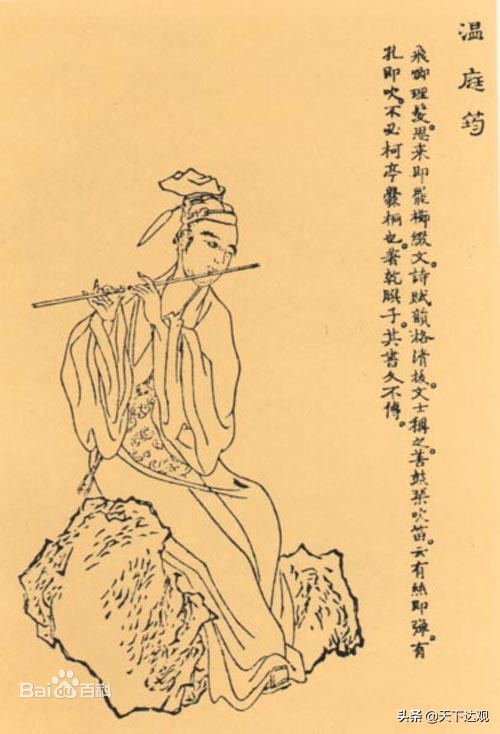 温庭筠
飛卿理髮。思来即罷櫛綴文。詩賦韻格清拔。文士稱之。善鼓琴吹笛。云有絲即彈。有
孔即吹。不必柯亭爨桐也。著乾𦠆子。其書久不傳。
Bai du 百科
头条 @天下达观